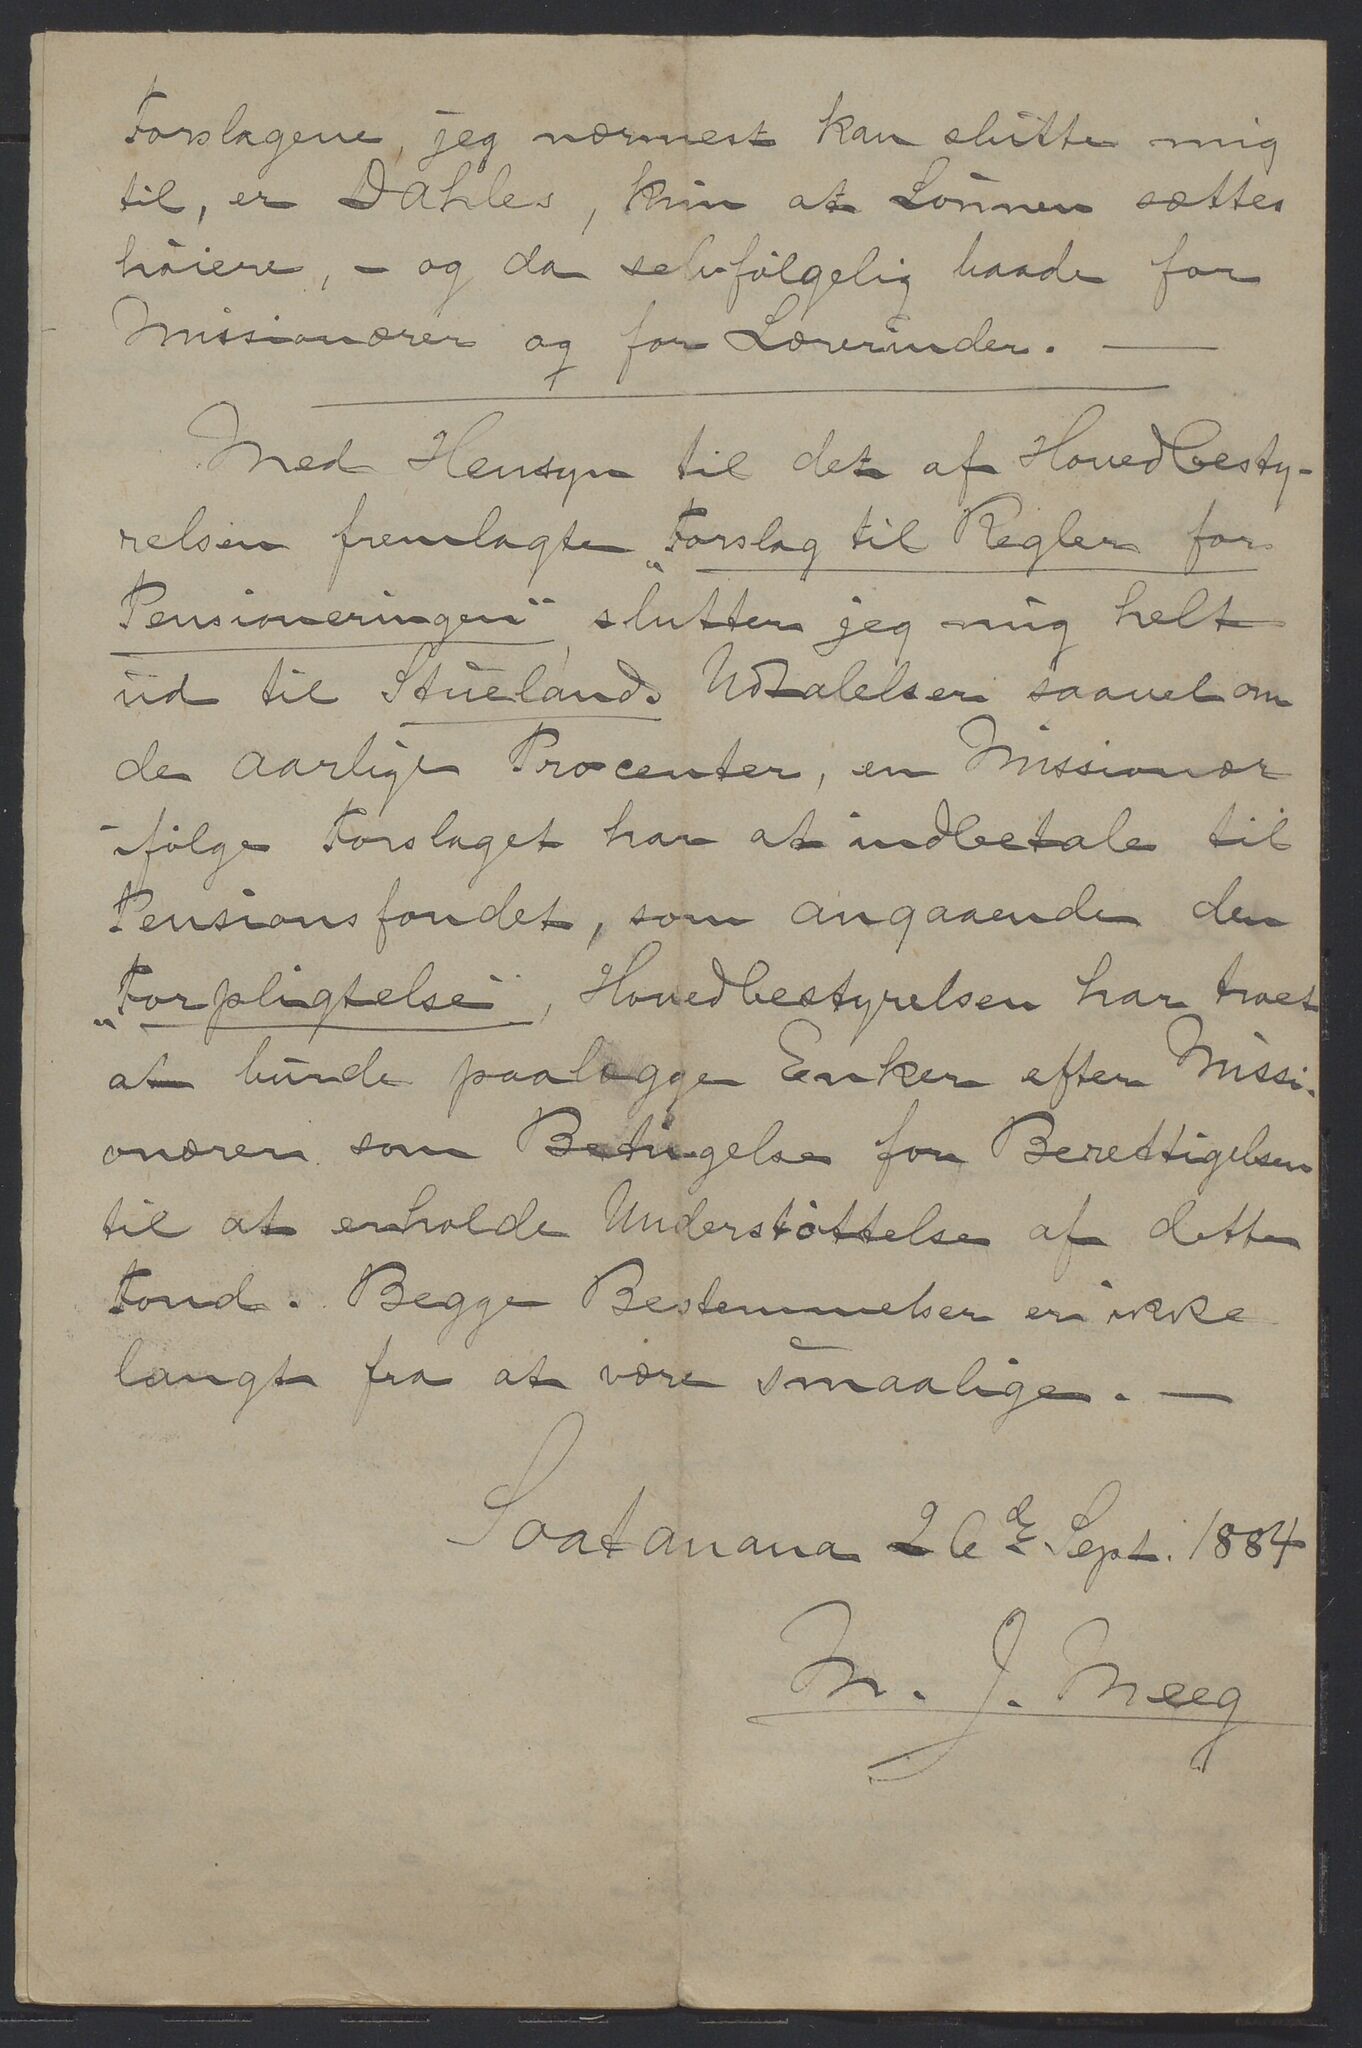 Forslagene, jeg nærmest kan slutte mig
til, er Dahles, kun at Lönnen sættes
höiere, – og da selvfölgelig baade for
Missionærer og for Lærerinder. —
Med Hensyn til det af Hovedbesty-
relsen fremlagte „Forslag til Regler for
Pensioneringen“, slutter jeg mig helt
ud til Stuelands Udtalelser saavel om
de aarlige Procenter, en Missionær
ifölge Forslaget har at indbetale til
Pensionsfondet, som angaaende den
„Forpligtelse“, Hovedbestyrelsen har troet
at burde paalægge Enker efter Missi-
onærer som Betingelse for Berettigelsen
til at erholde Understöttelse af dette
Fond. Begge Bestemmelser er ikke
langt fra at være smaalige. —
Soatanana 26de Sept. 1884
M. J. Meeg